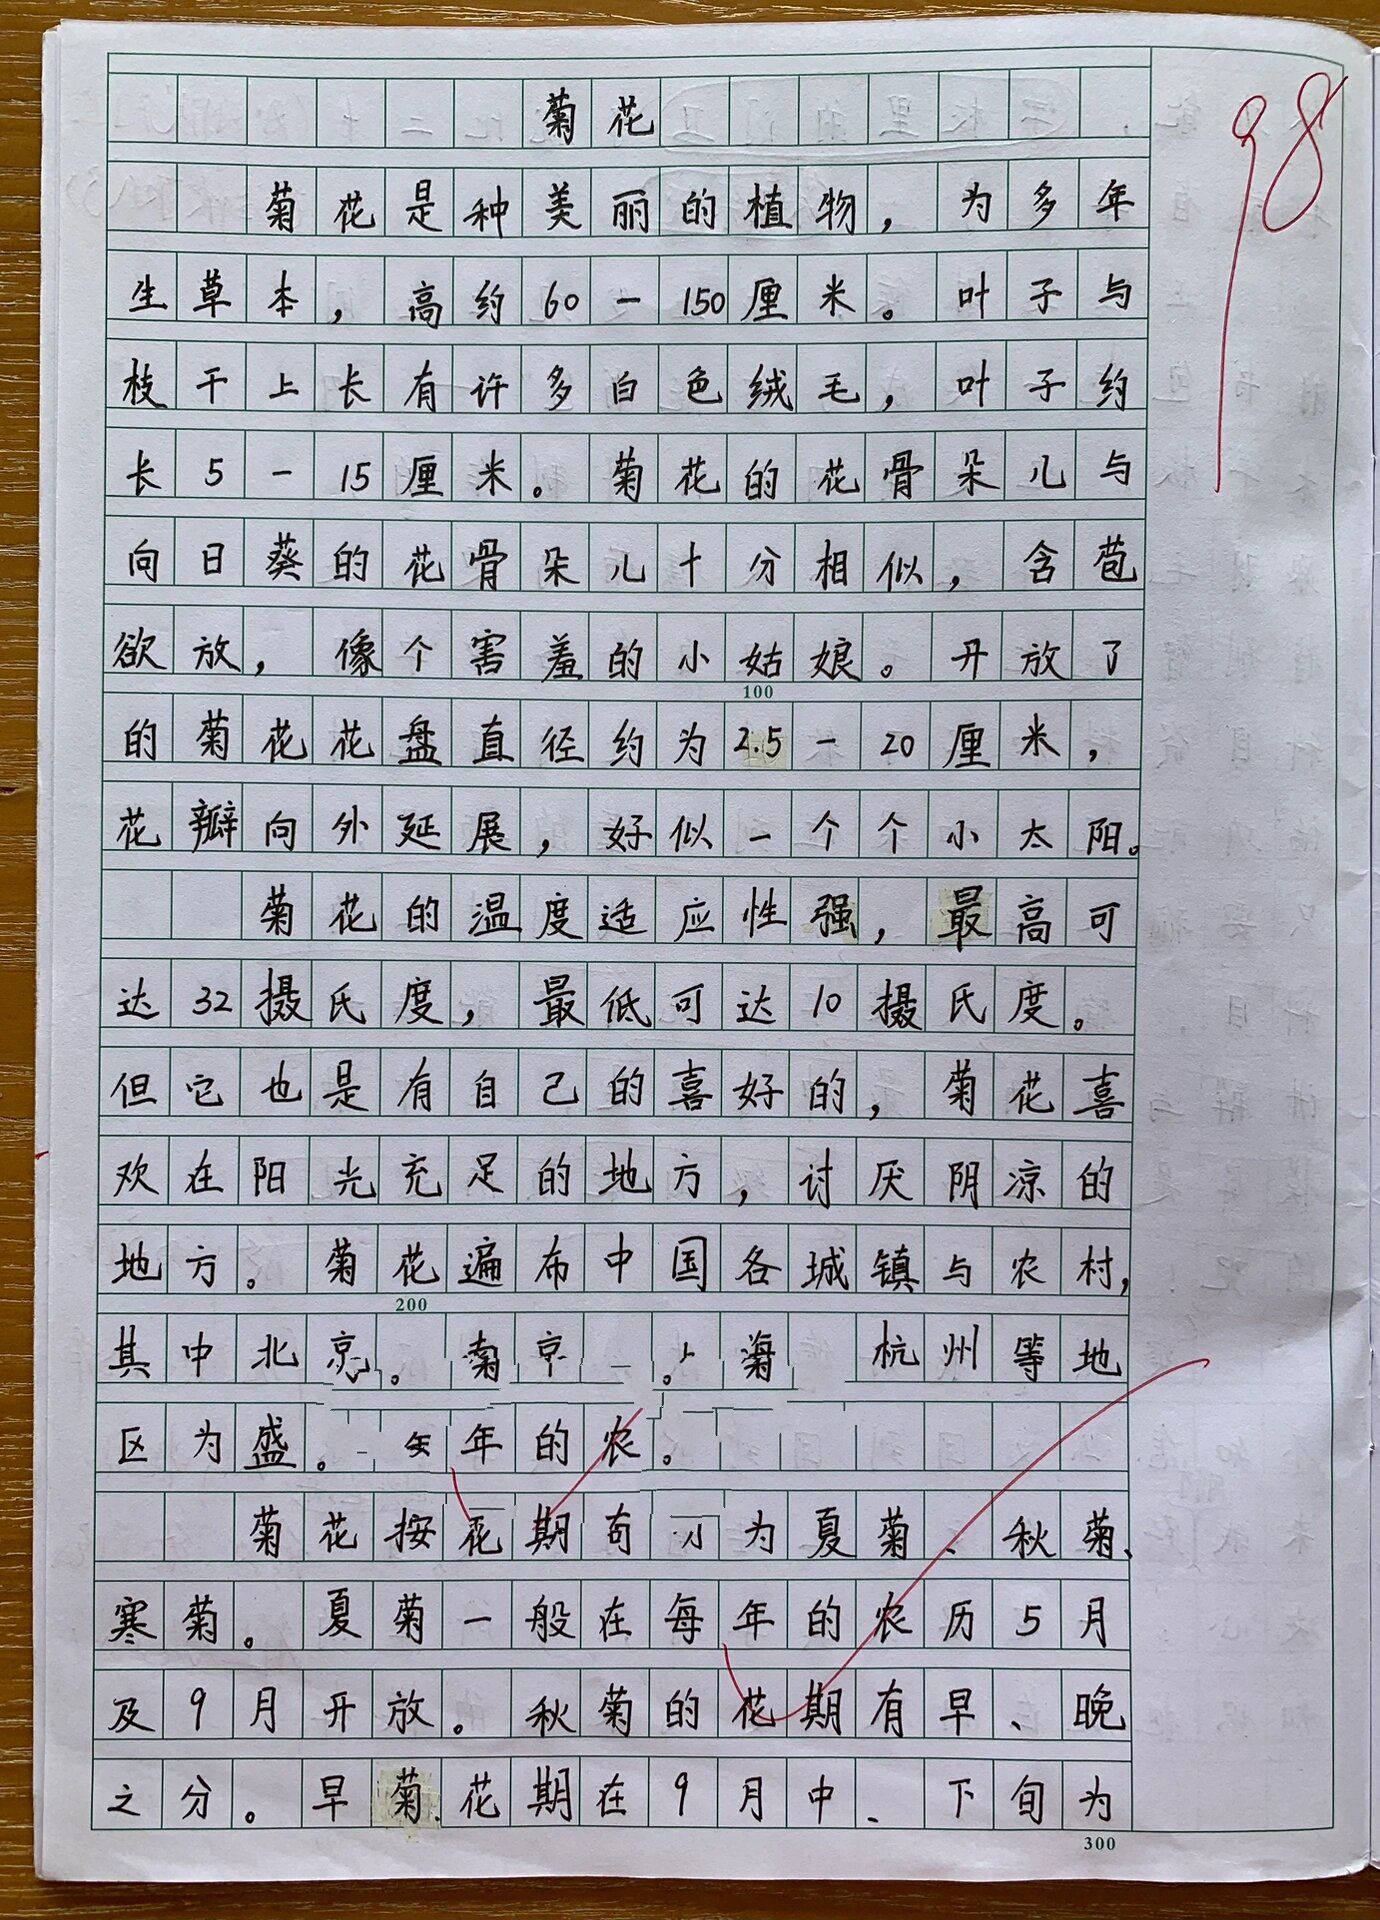 菊花
菊花是种美丽的植物，为多年
生草本，高约60-150厘米。叶子与
枝干上长有许多白色绒毛，叶子约
长5-15厘米。菊花的花骨朵儿与
向日葵的花骨朵儿十分相似，含苞
欲放，像个害羞的小姑娘。开放了
100
的菊花花盘直径约为2.5-20厘米，
花瓣向外延展，好似一个个小太阳。
菊花的温度适应性强，最高可
达32摄氏度，最低可达10摄氏度。
但它也是有自己的喜好的，菊花喜
欢在阳光充足的地方，讨厌阴凉的
地方。菊花遍布中国各城镇与农村，
200
其中北京。南京 。 杭州等地
区为盛。 年的农。
菊花按花期 为夏菊、秋菊、
寒菊。夏菊一般在每年的农历5月
及9月开放。秋菊的花期有早、晚
之分。早菊花期在9月中、下旬为
300
98